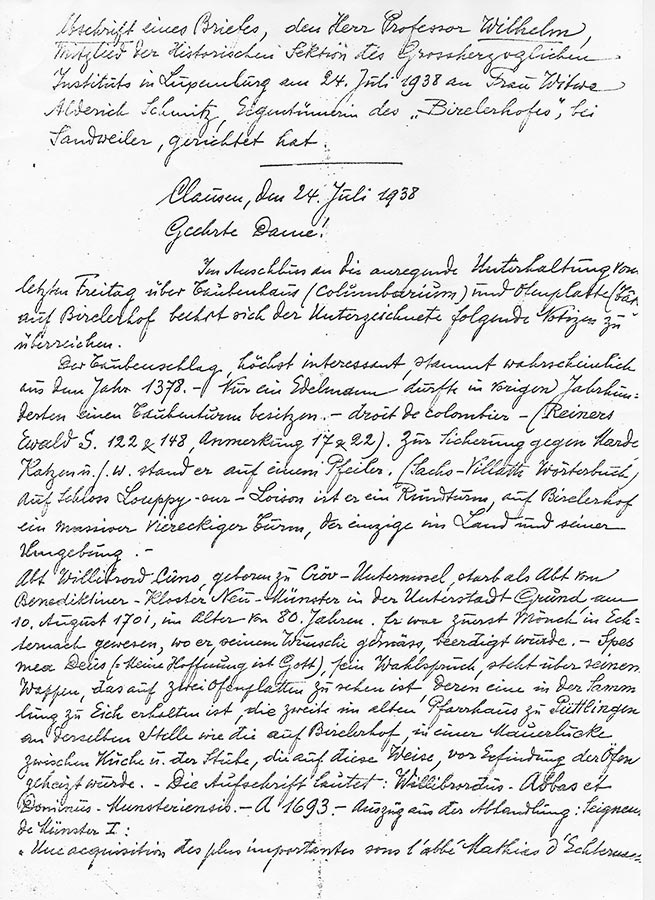 Abschrift eines Briefes, den Herr Professor Wilhelm,
Mitglied der Historischen Sektion des Grossherzoglichen
Instituts in Luxemburg am 24. Juli 1938 an Frau Witwe
Alderich Schmitz, Eigentümerin des „Birelerhofes", bei
Sandweiler, gerichtet hat.
Clausen, den 24. Juli 1938
Geehrte Dame!
Im Anschluss an die anregende Unterhaltung vom
letzten Freitag über Taubenhaus (Columbarium) und Ofenplatte
auf Birelerhof beehrt sich der Unterzeichnete folgende Notizen zu
überreichen.
Der Taubenschlag, höchst interessant, stammt wahrscheinlich
aus dem Jahr 1378. - Nur ein Edelmann durfte in vorigen Jahrhun-
derten einen Taubenturm besitzen. - droit de colombier - (Reiners
Ewald S. 122 & 148, Anmerkung 17 & 22). Zur Sicherung gegen Marde
Katzen u.s.w. stand er auf einem Pfeiler. (Sachs-Villatte Wörterbuch)
Auf Schloss Louppy-sur-Loison ist er ein Rundturm, auf Birelerhof
ein massiver viereckiger Turm, der einzige im Land und seiner
Umgebung. -
Abt Willibrord Cuno, geboren zu Cröv-Untermosel, starb als Abt vom
Benediktiner-Kloster Neu-Münster in der Unterstadt Grund am
10. August 1701, im Alter von 80 Jahren. Er war zuerst Mönch in Ech-
ternach gewesen, wo er, seinem Wunsche gemäss, beerdigt wurde. - Spes
mea Deus (: Meine Hoffnung ist Gott), sein Wahlspruch, steht über seinem
Wappen, das auf zwei Ofenplatten zu sehen ist, deren eine in der Samm
lung zu Eich erhalten ist, die zweite im alten Pfarrhaus zu Püttlingen
an derselben Stelle wie die auf Birelerhof, in einer Mauerlücke
zwischen Küche u. der Stube, die auf diese Weise, vor Erfindung der Öfen
geheizt wurde. - Die Aufschrift lautet: Willibrordus - Abbas et
Dominus - Munsteriensis. - A 1693. - Auszug aus der Abhandlung: Seigneu
de Münster I:
„Une acquisition des plus importantes sous l'abbé Mathias d'Echternac